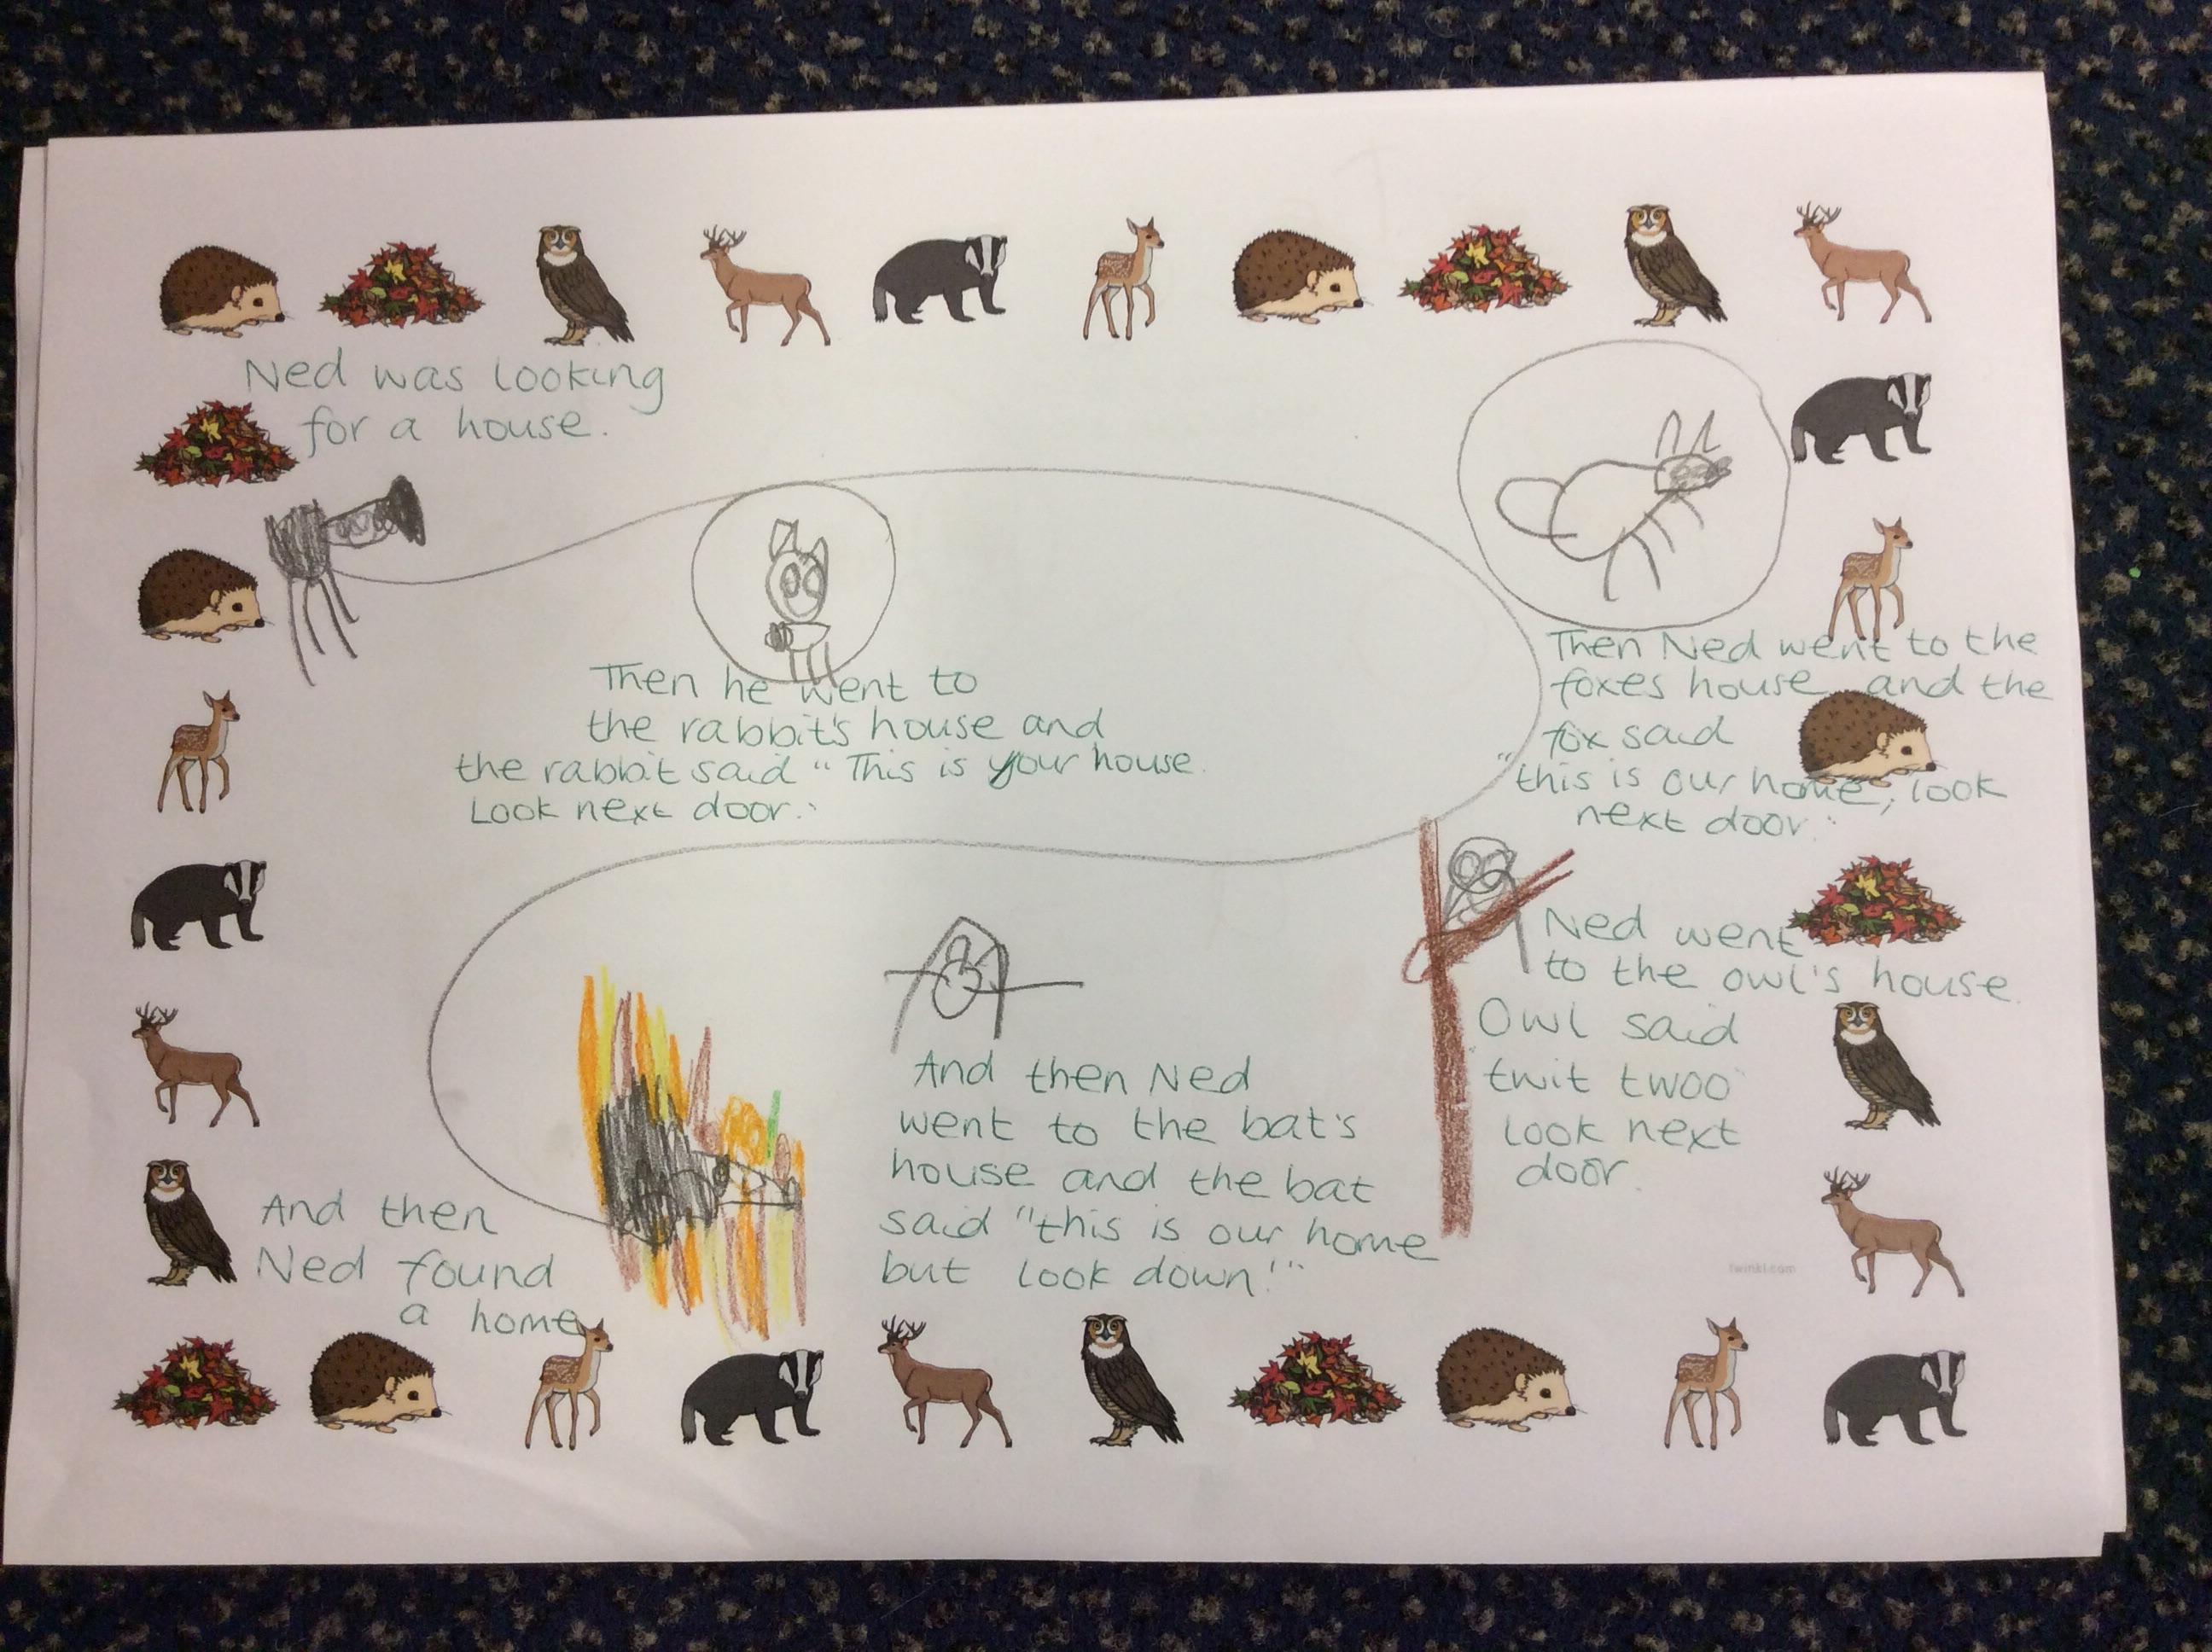 Ned was looking
for a house.
Then he went to
the rabbit's house and
the rabbit said "This is your house.
Look next door."
Then Ned went to the
foxes house and the
fox said
"this is our home, look
next door."
Ned went
to the owl's house.
Owl said
twit twoo
look next
door.
And then Ned
went to the bat's
house and the bat
said "this is our home
but look down!"
And then
Ned found
a home
twinkl.com